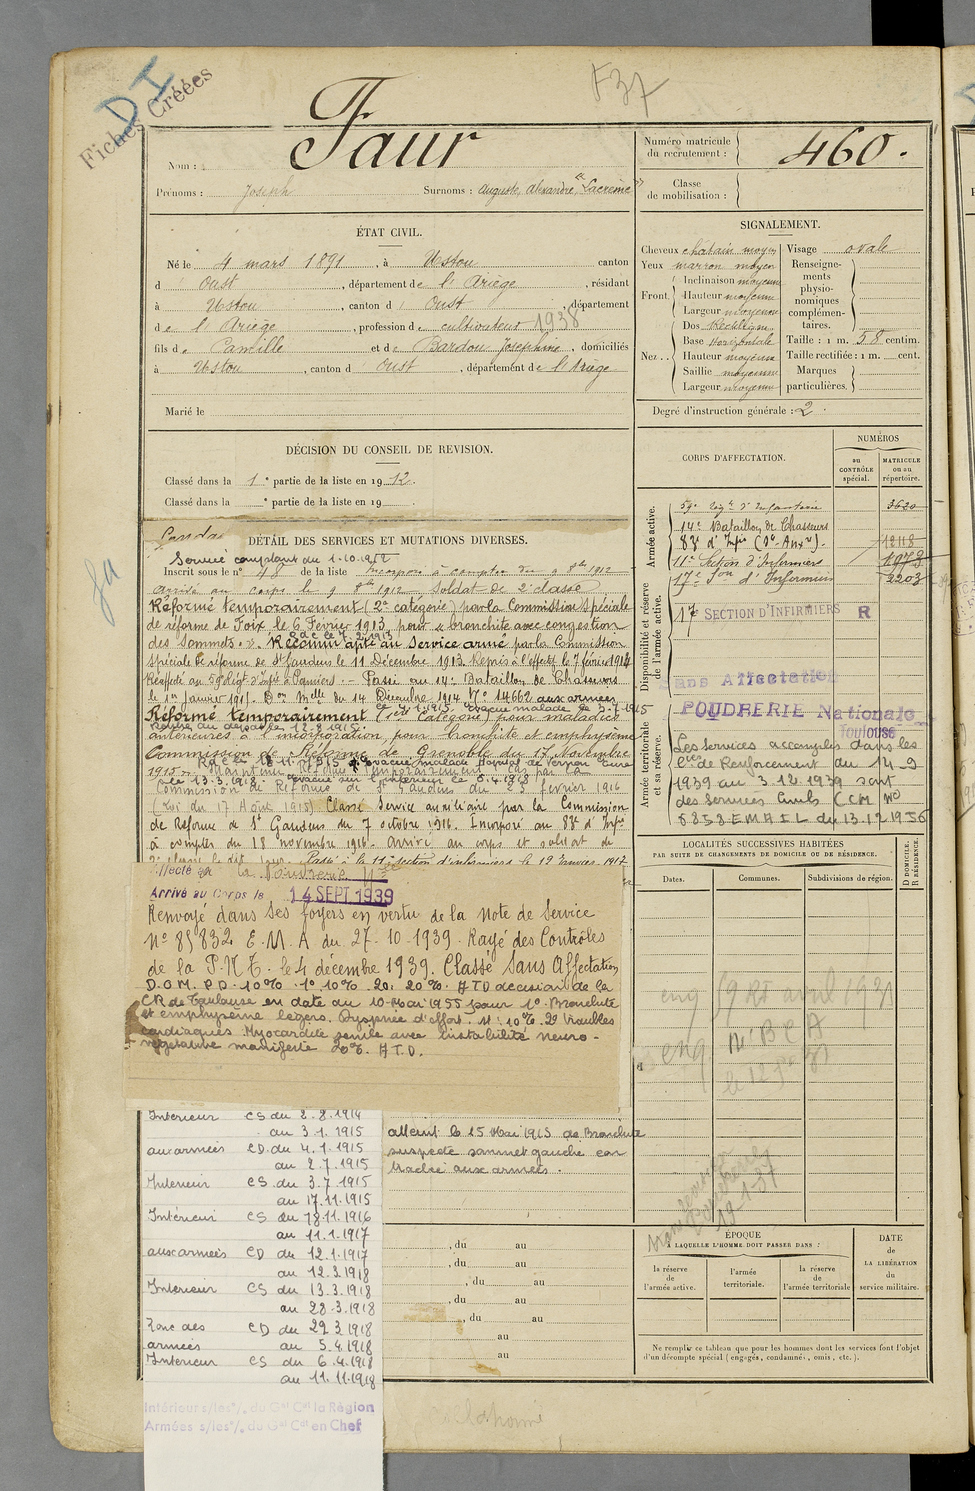 DI
Fiches Créées
F37
Nom : Faur
Prénoms : Joseph Surnoms : Auguste, Alexandre, "Lacrème"
Numéro matricule du recrutement : 460.
Classe de mobilisation :
ÉTAT CIVIL.
Né le 4 mars 1891, à Ustou canton
d' Oust, département de l'Ariège, résidant
à Ustou, canton d' Oust, département
de l'Ariège, profession de cultivateur 1938
fils de Camille et de Bardou Josephine, domiciliés
à Ustou, canton d' Oust, département de l'Ariège
Marié le
SIGNALEMENT.
Cheveux chatain moyen
Yeux marron moyen
Front. Inclinaison moyenne
Hauteur moyenne
Largeur moyenne
Nez. Dos Rectiligne
Base Horizontale
Hauteur moyenne
Saillie moyenne
Largeur moyenne
Visage ovale
Renseignements physionomiques complémentaires.
Taille : 1 m. 58 centim.
Taille rectifiée : 1 m. cent.
Marques particulières.
Degré d'instruction générale : 2.
DÉCISION DU CONSEIL DE REVISION.
Classé dans la 1e partie de la liste en 1912.
Classé dans la e partie de la liste en 19 .
DÉTAIL DES SERVICES ET MUTATIONS DIVERSES.
Service comptant du 1-10-1912
Inscrit sous le n° 48 de la liste Incorporé à compter du 9 8bre 1912
arrivé au corps le 9 8bre 1912 soldat de 2e classe
Réformé temporairement (2e catégorie) par la Commission spéciale
de réforme de Foix le 6 Février 1913, pour « bronchite avec congestion
des sommets. » Reconnu apte au Service armé par la Commission
spéciale de réforme de St Gaudens le 11 Décembre 1913. Remis à l'effectif le 7 février 1914
Réaffecté au 59e Régt d'Infie à Pamiers. Passé au 14e Bataillon de Chasseurs
le 1er Janvier 1915. Don Melle du 14 Décembre 1914 N° 14662 aux armées
le 4.1.1915. Evacué malade le 3.7.1915
Réformé temporairement (1ère Catégorie) pour maladies
Rentré au dépôt le 12.8.1915
antérieures à l'incorporation, pour bronchite et emphysème
Commission de Réforme de Grenoble du 17 Novembre
1915. Rdc le 18.11.1915
Maintenu Réformé Temporairement par la
Commission de Réforme de St Gaudens du 23 février 1916
(Loi du 17 Août 1915) Classé Service auxiliaire par la Commission
de Réforme de St Gaudens du 7 octobre 1916. Incorporé au 83e d'Infie
à compter du 18 novembre 1916. Arrivé au corps et soldat de
2e classe le dit jour. Passé à la 11e section d'infirmiers le 12 janvier 1917
Affecté à la Poudrerie Nle
Arrivé au Corps le 14 SEPT 1939
Renvoyé dans ses foyers en vertu de la Note de Service
N° 85832 E.M.A du 27-10-1939. Rayé des Contrôles
de la P.N.T. le 4 décembre 1939. Classé Sans Affectation
D.O.M. P.D. 10% 1° 10% 2°: 20% A.T.D décision de la
CR de Toulouse en date du 10-Mai 1955 pour 1° Bronchite
et emphysème légers. Dyspnée d'effort. M: 10% 2° Troubles
cardiaques Myocardite sénile avec instabilité neuro-
végétative manifeste 20% A.T.D.
CORPS D'AFFECTATION.
NUMÉROS
au CONTRÔLE spécial.
MATRICULE ou au répertoire.
Armée active.
59e Régt d'Infanterie 3620
14e Bataillon de Chasseurs
83e d'Infie (Se Auxre) 12118
11e Section d'Infirmiers 1073
17e Son d'Infirmiers 2203
Disponibilité et réserve de l'armée active.
17e SECTION D'INFIRMIERS R
Sans Affectation
Armée territoriale et sa réserve.
POUDRERIE Nationale
Toulouse
Les services accomplis dans les
Cies de Renforcement du 14-9
1939 au 3.12.1939 sont
des Services Civils (CCM N°
6858 EMAIL du 13.12.1956
LOCALITÉS SUCCESSIVES HABITÉES
PAR SUITE DE CHANGEMENTS DE DOMICILE OU DE RÉSIDENCE.
Dates. Communes. Subdivisions de région. D DOMICILE. R RÉSIDENCE.
Intérieur CS du 2.8.1914
au 3.1.1915
aux armées CD du 4.1.1915
au 2.7.1915
Intérieur CS du 3.7.1915
au 17.11.1915
Intérieur CS du 18.11.1916
au 11.1.1917
aux armées CD du 12.1.1917
au 12.3.1918
Intérieur CS du 13.3.1918
au 28.3.1918
Zone des CD du 29.3.1918
armées au 5.4.1918
Intérieur CS du 6.4.1918
au 11.11.1918
Intérieur s/les °/. du Gal Ct la Région
Armées s/les °/. du Gal Ct en Chef
atteint le 15 Mai 1915 de Bronchite
suspecte sommet gauche
aux armées.
, du au
, du au
, du au
, du au
, du au
au
au
ÉPOQUE
À LAQUELLE L'HOMME DOIT PASSER DANS :
la réserve de l'armée active.
l'armée territoriale.
la réserve de l'armée territoriale
DATE de LA LIBÉRATION du service militaire.
Ne remplir ce tableau que pour les hommes dont les services font l'objet
d'un décompte spécial (engagés, condamnés, omis, etc.).